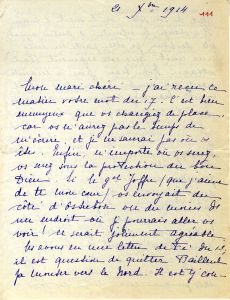 21 Xbre 1914
Mon mari chéri – j'ai reçu ce
matin votre mot du 17. C'est bien
ennuyeux que vs changiez de place,
car vs n'aurez pas le temps de
m'écrire et je ne saurai pas où vs
êtes. Enfin, n'importe où vs serez,
vs serez sous la protection du bon
Dieu – Si le gal Joffre (que j'aime
de tt mon cœur) vs envoyait du
côté d' ou du moins ds
un endroit où je pourrais aller vs
voir ! ce serait joliment agréable
Ns avons eu une lettre de du 13,
il est question de quitter
pr monter vers le Nord. Il est